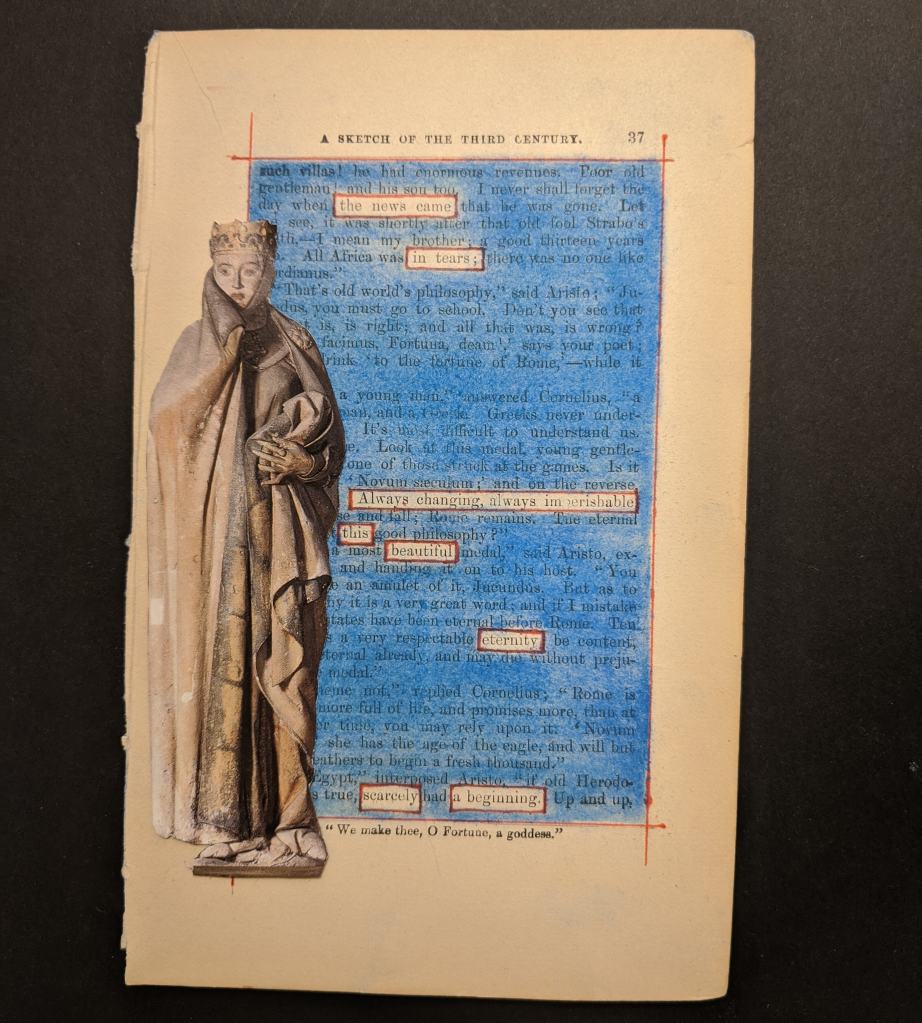 A SKETCH OF THE THIRD CENTURY. 37
such villas! he had enormous revenues. Poor old
gentleman! and his son too. I never shall forget the
day when the news came that he was gone. Let
see, it was shortly after that old fool Strabo's
th,—I mean my brother; a good thirteen years
All Africa was in tears; there was no one like
rdianus."
"That's old world's philosophy," said Aristo; "Ju-
dus, you must go to school. Don't you see that
is, is right; and all that was, is wrong?
facinus, Fortuna, deam,' says your poet;
drink 'to the fortune of Rome,'—while it
a young man," answered Cornelius, "a
man, and a Greek. Greeks never under-
It's most difficult to understand us.
Look at this medal, young gentle-
one of those struck at the games. Is it
'Novum sæculum;' and on the reverse,
Always changing, always imperishable
se and fall; Rome remains. The eternal
this good philosophy?"
a most beautiful medal," said Aristo, ex-
and handing it on to his host. "You
an amulet of it, Jucundus. But as to
it is a very great word; and if I mistake
states have been eternal before Rome. Ten
a very respectable eternity; be content,
eternal already, and may die without preju-
medal."
not," replied Cornelius; "Rome is
more full of life, and promises more, than at
time, you may rely upon it. 'Novum
she has the age of the eagle, and will but
eathers to begin a fresh thousand."
Egypt," interposed Aristo, "if old Herodo-
s true, scarcely had a beginning. Up and up,
"We make thee, O Fortune, a goddess."